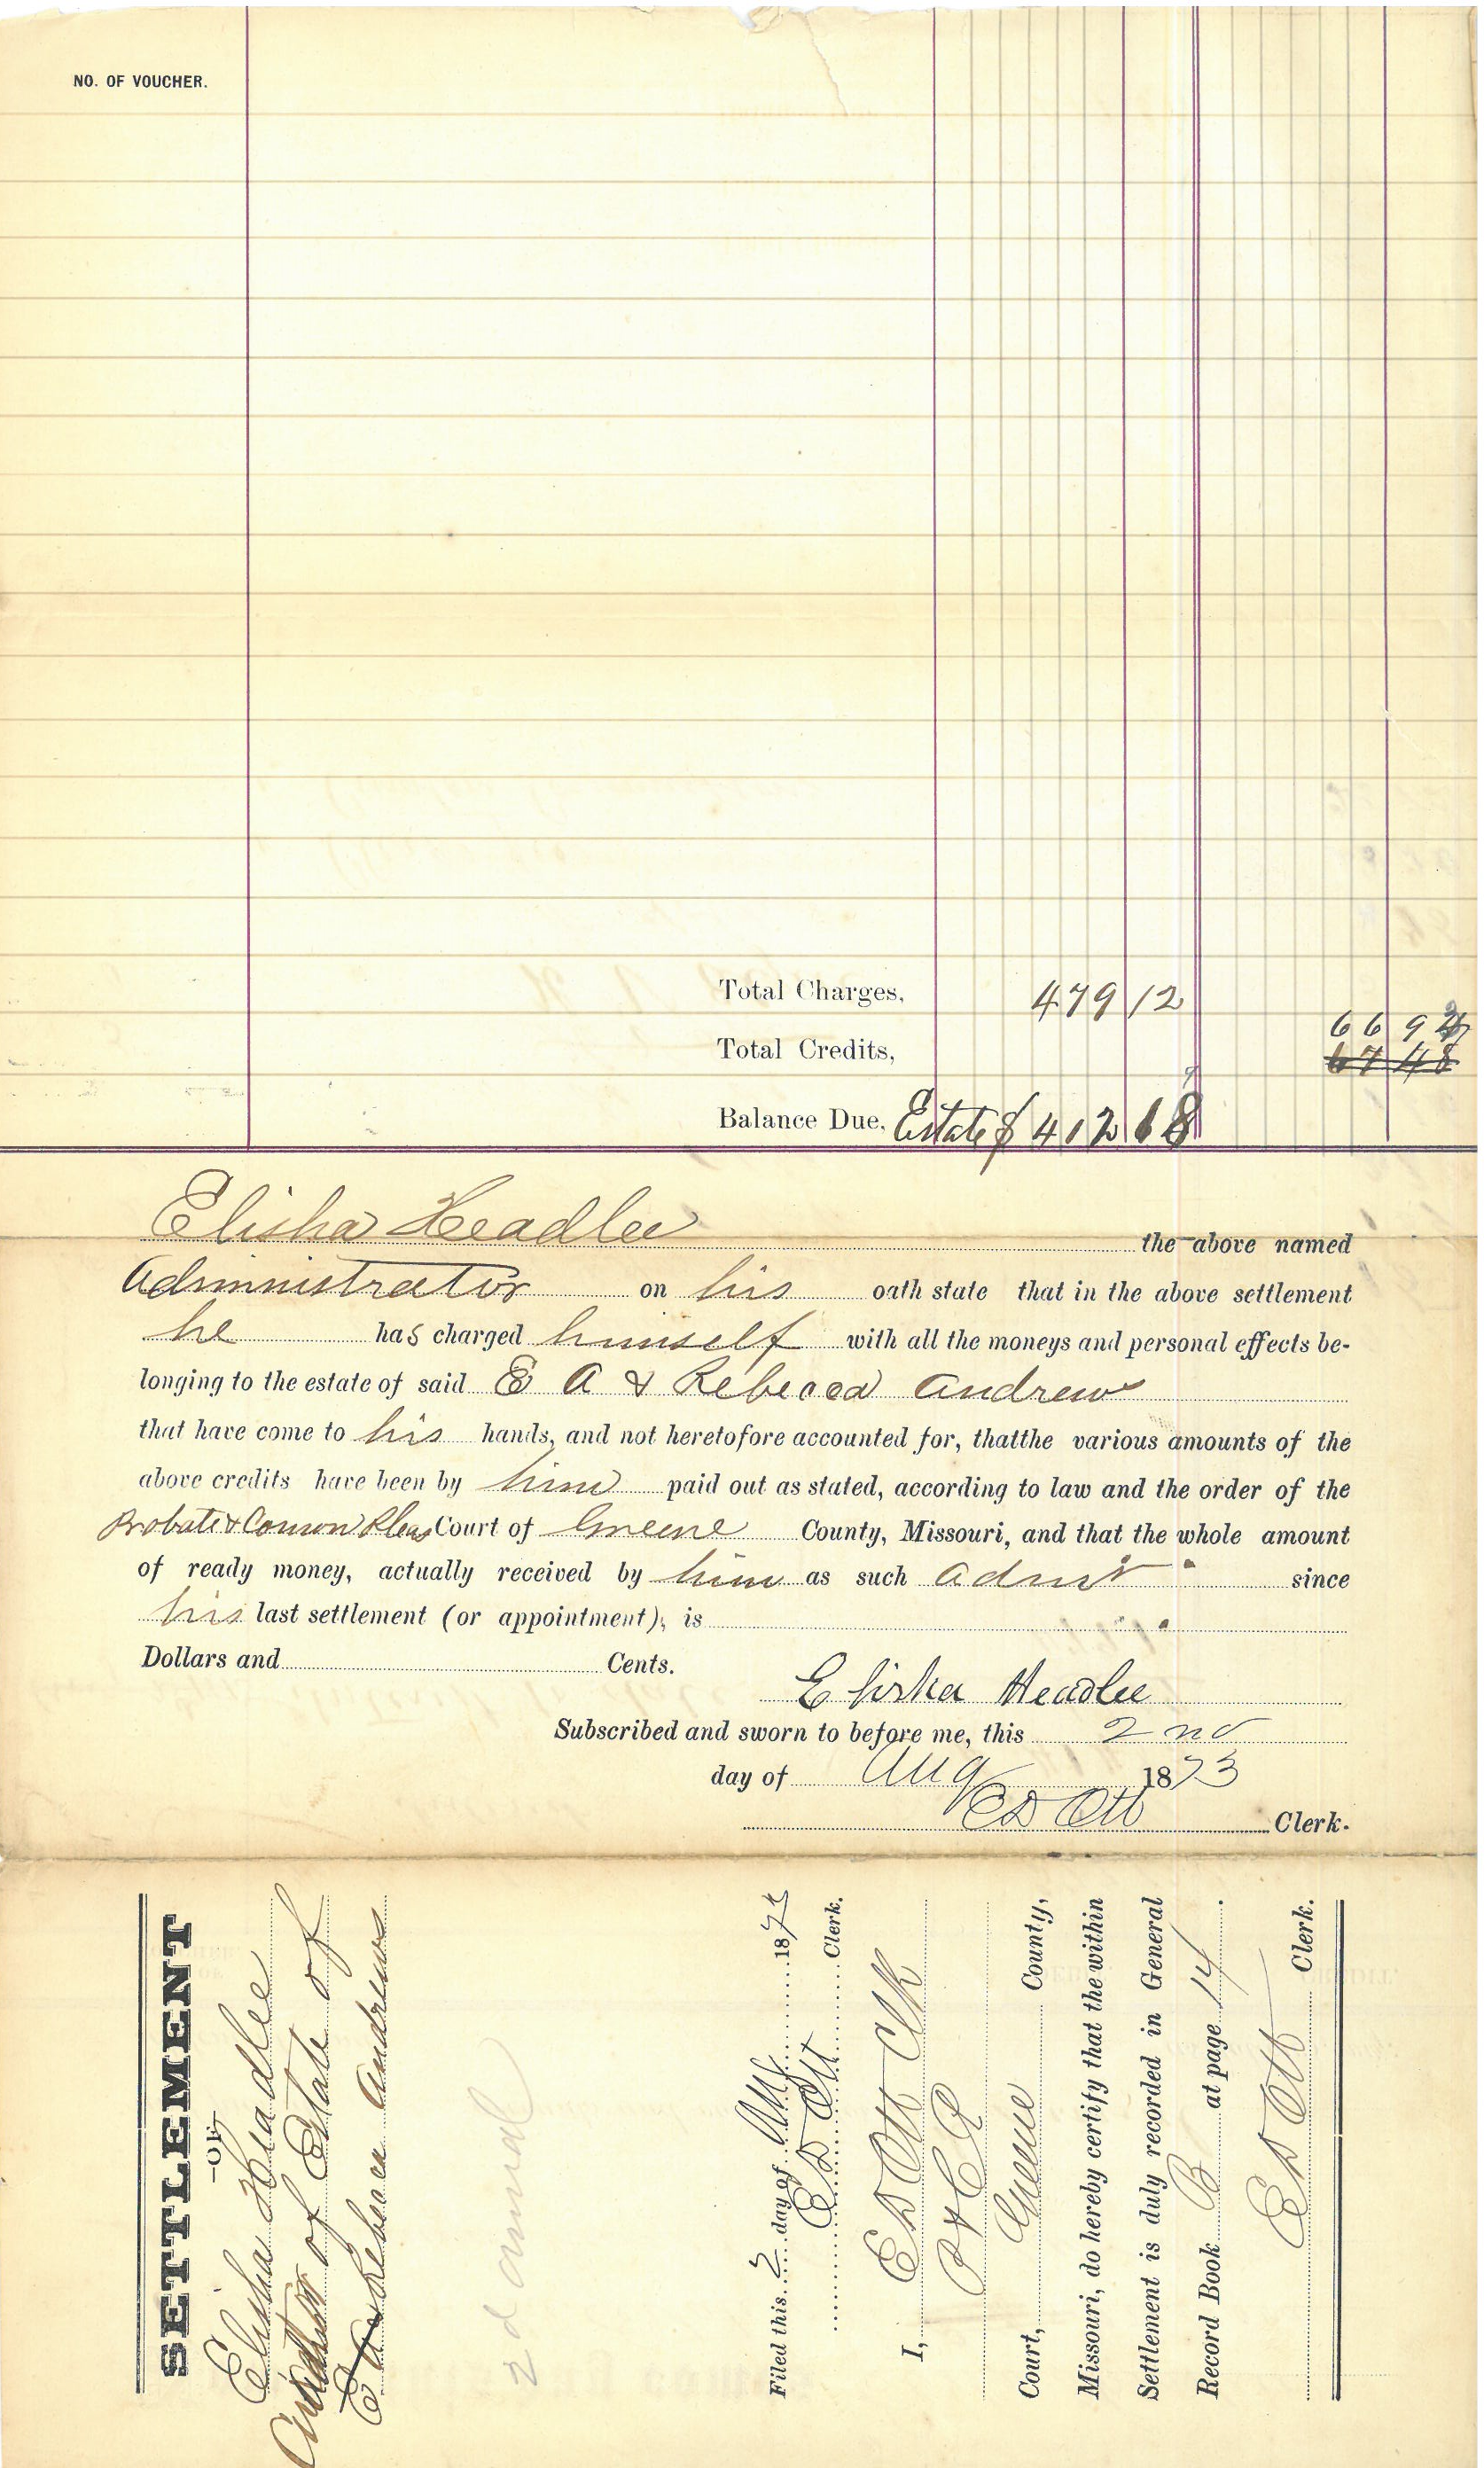 NO. OF VOUCHER.
Total Charges, 479 12
66 94
Total Credits, 67 48
Balance Due, Estate $ 412 18
Elisha Headlee the above named
Administrator on his oath state that in the above settlement
he has charged himself with all the moneys and personal effects be-
longing to the estate of said E A & Rebecca Andrews
that have come to his hands, and not heretofore accounted for, thatthe various amounts of the
above credits have been by him paid out as stated, according to law and the order of the
Probate & Comon Pleas Court of Greene County, Missouri, and that the whole amount
of ready money, actually received by him as such Admr since
his last settlement (or appointment), is
Dollars and Cents.
Elisha Headlee
Subscribed and sworn to before me, this 2nd
day of Aug 1873
E D Ott Clerk.
SETTLEMENT
—OF—
Elisha Headlee
of Estate of
E A & Rebecca Andrews
2d annual
Filed this 2 day of Aug 187
E D Ott Clerk.
I, E D Ott Clk
P & C P
Court, Greene County,
Missouri, do hereby certify that the within
Settlement is duly recorded in General
Record Book B at page 14.
E D Ott Clerk.